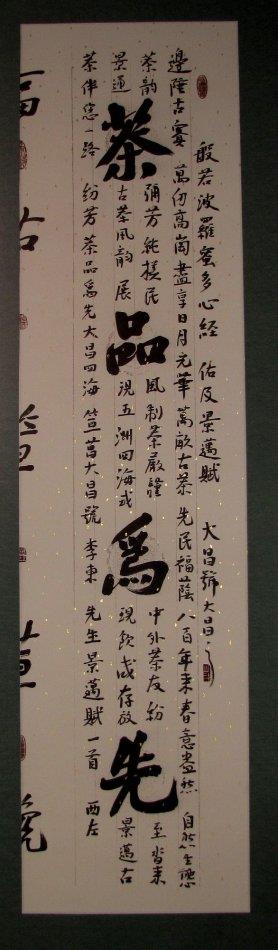 般若波羅蜜多心經 佑及景邁賦 大昌號大昌
邊陲古寨 萬仞高崗盡享日月光華 萬畝古茶 先民福蔭 八百年来春意盎然 自然生態
茶韵 彌芳純樸民風制茶嚴謹 中外茶友紛至沓来
茶品爲先
景邁古茶風韵 展現五洲四海或現飲或存放 景邁古
茶伴您一路 紛芳 茶品爲先大昌四海 大昌號 李東先生景邁賦一首 西左